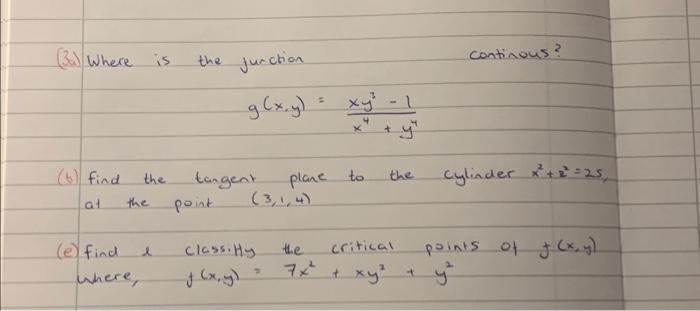 (3a) Where is the function continous?
g(x,y) = xy³ - 1 / x⁴ + y⁴
(b) find the tangent plane to the cylinder x² + z² = 25,
at the point (3,1,4)
(e) find & classifly the critical points of f(x,y)
where, f(x,y) = 7x² + xy² + y²